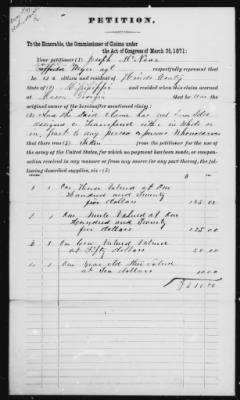 PETITION.
To the Honorable, the Commissioner of Claims under
the Act of Congress of March 3d, 1871:
Your petitioner (1) Joseph
respectfully represent that
he is a citizen and resident of Hinds County
State of (2) Mississippi and resided when this claim accrued
that he was the
original owner of the hereinafter mentioned claim:
As And the Said Claim has not been Sold
assigned or Transfered either in whole or
in part to any person or persons Whomsoever
that there was (3) taken from the petitioner for the use of
the army of the United States, for which no payment has been made, or compensation
received in any manner or from any source (or any part thereof), the following
described supplies, viz: (4)
1 One Horse Valued at One
Hundred and Twenty
five dollars 125.00
2 1 One Mule Valued at One
Hundred and Twenty
five dollars 125.00
3 1 One Cow Valued
at Fifty dollars 50.00
4 1 One Year old Valued
at Ten dollars 10.00